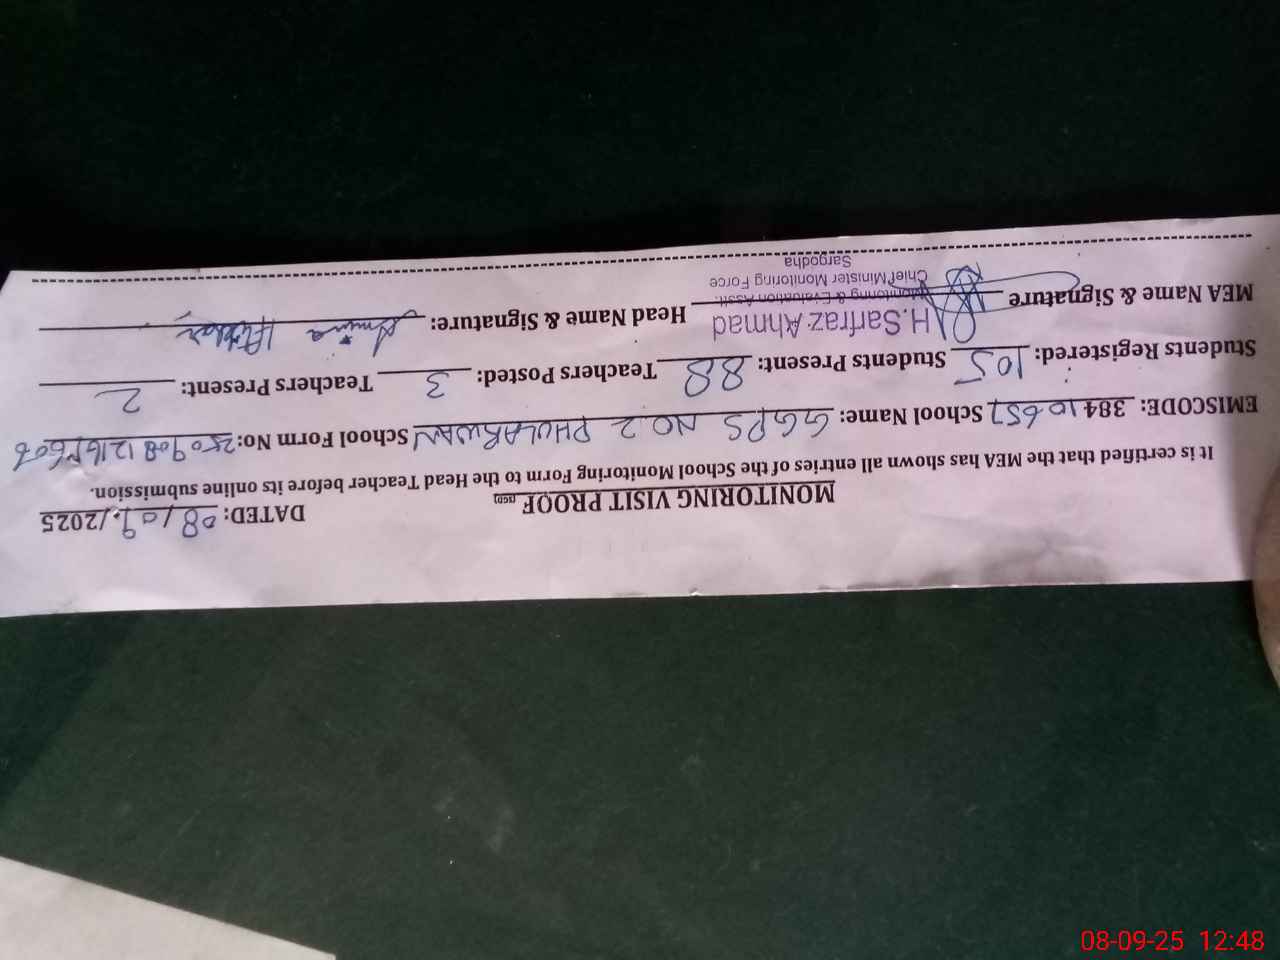 MONITORING VISIT PROOF (SED)
DATED: 08/09/2025
It is certified that the MEA has shown all entries of the School Monitoring Form to the Head Teacher before its online submission.
EMISCODE: 38410657 School Name: GGPS NO.2 PHULARWAN School Form No:
Students Registered: 105 Students Present: 88 Teachers Posted: 3 Teachers Present: 2
MEA Name & Signature H.Sarfraz Ahmad Head Name & Signature: Amina
Monitoring & Evaluation Asstt.
Chief Minister Monitoring Force
Sargodha
08-09-25 12:48